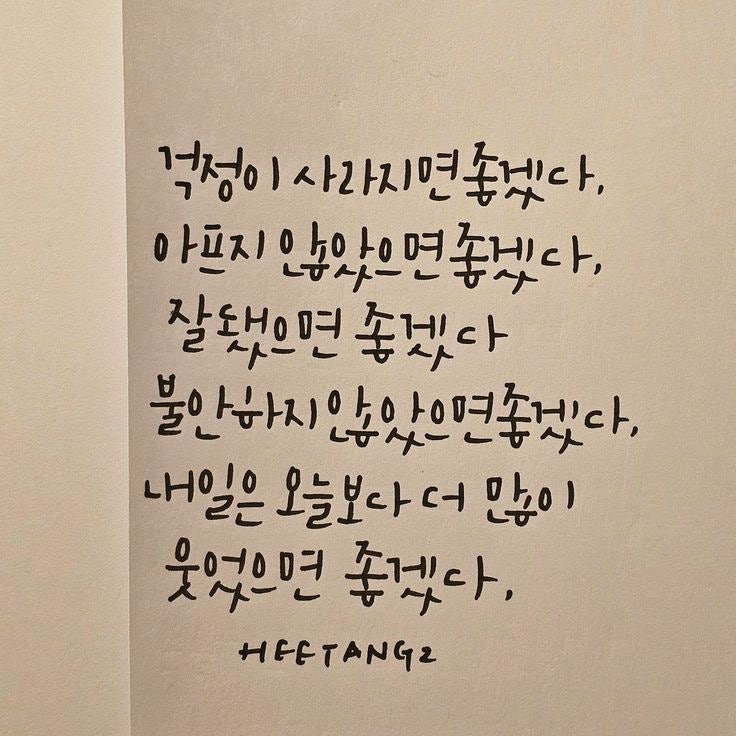 걱정이 사라지면 좋겠다,
아프지 않았으면 좋겠다,
잘됐으면 좋겠다
불안하지 않았으면 좋겠다,
내일은 오늘보다 더 많이
웃었으면 좋겠다,
HEETANG2